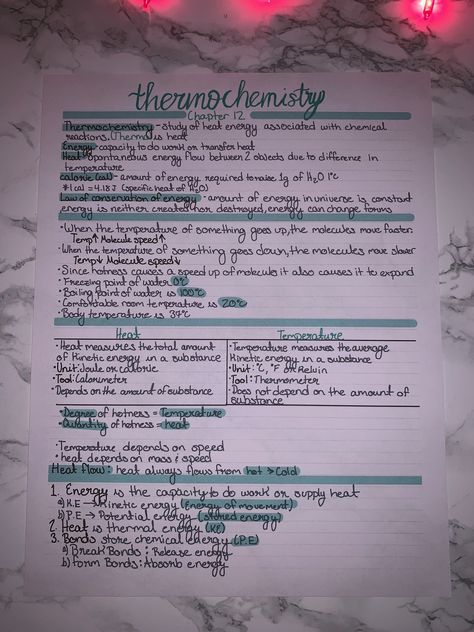 thermochemistry
Chapter 12
Thermochemistry - study of heat energy associated with chemical
reactions. Thermo is heat
Energy - capacity to do work or transfer heat
Heat - spontaneous energy flow between 2 objects due to difference in
temperature
calorie (cal) - amount of energy required to raise 1g of H2O 1°C
*1 cal = 4.18 J (specific heat of H2O)
Law of conservation of energy - amount of energy in universe is constant
energy is neither created nor destroyed, energy can change forms
• When the temperature of something goes up, the molecules move faster.
Temp↑ Molecule speed↑
• When the temperature of something goes down, the molecules move slower
Temp↓ Molecule speed↓
• Since hotness causes a speed up of molecule it also causes it to expand
• Freezing point of water 0°C
• Boiling point of water is 100°C
• Comfortable room temperature is 20°C
• Body temperature is 37°C
Heat
• Heat measures the total amount
of Kinetic energy in a substance
• Unit: Joule or calorie
• Tool: Calorimeter
• Depends on the amount of substance
Temperature
• Temperature measures the average
Kinetic energy in a substance
• Unit: °C, °F or Kelvin
• Tool: Thermometer
• Does not depend on the amount of
substance
• Degree of hotness = Temperature
• Quantity of hotness = heat
• Temperature depends on speed
• heat depends on mass & speed
Heat flow: heat always flows from hot > Cold
1. Energy is the capacity to do work or supply heat
a) K.E → Kinetic energy (energy of movement)
b) P.E → Potential energy (stored energy)
2. Heat is thermal energy (KE)
3. Bonds store chemical energy (P.E)
a) Break Bonds: Release energy
b) Form Bonds: Absorb energy